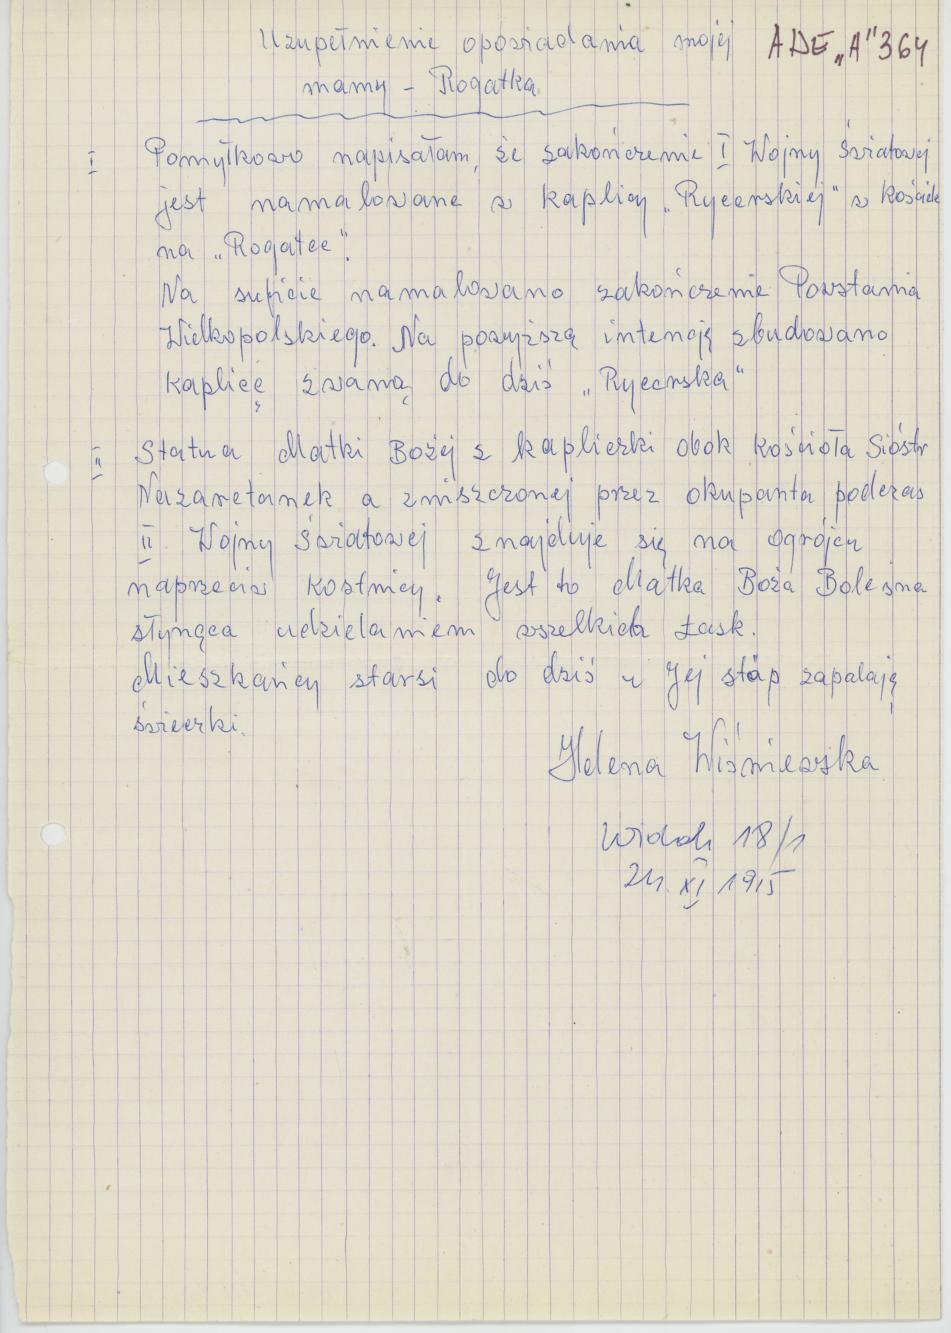 Uzupełnienie opowiadania mojej ADE „A” 364
mamy – Rogatka
I Pomyłkowo napisałam, że zakończenie I Wojny Światowej
jest namalowane w kaplicy „Rycerskiej” w kościele
na „Rogatce”.
Na suficie namalowano zakończenie Powstania
Wielkopolskiego. Na powyższą intencję zbudowano
kaplicę zwaną do dziś „Rycerska”
II Statua Matki Bożej z kapliczki obok kościoła Sióstr
Nazaretanek a zniszczonej przez okupanta podczas
II Wojny Światowej znajduje się na ogrójcu
naprzeciw kostnicy. Jest to Matka Boża Bolesna
słynąca udzielaniem wszelkich łask.
Mieszkańcy starsi do dziś u Jej stóp zapalają
świeczki.
Helena Wiśniewska
Widok 18/1
24. XI 1975